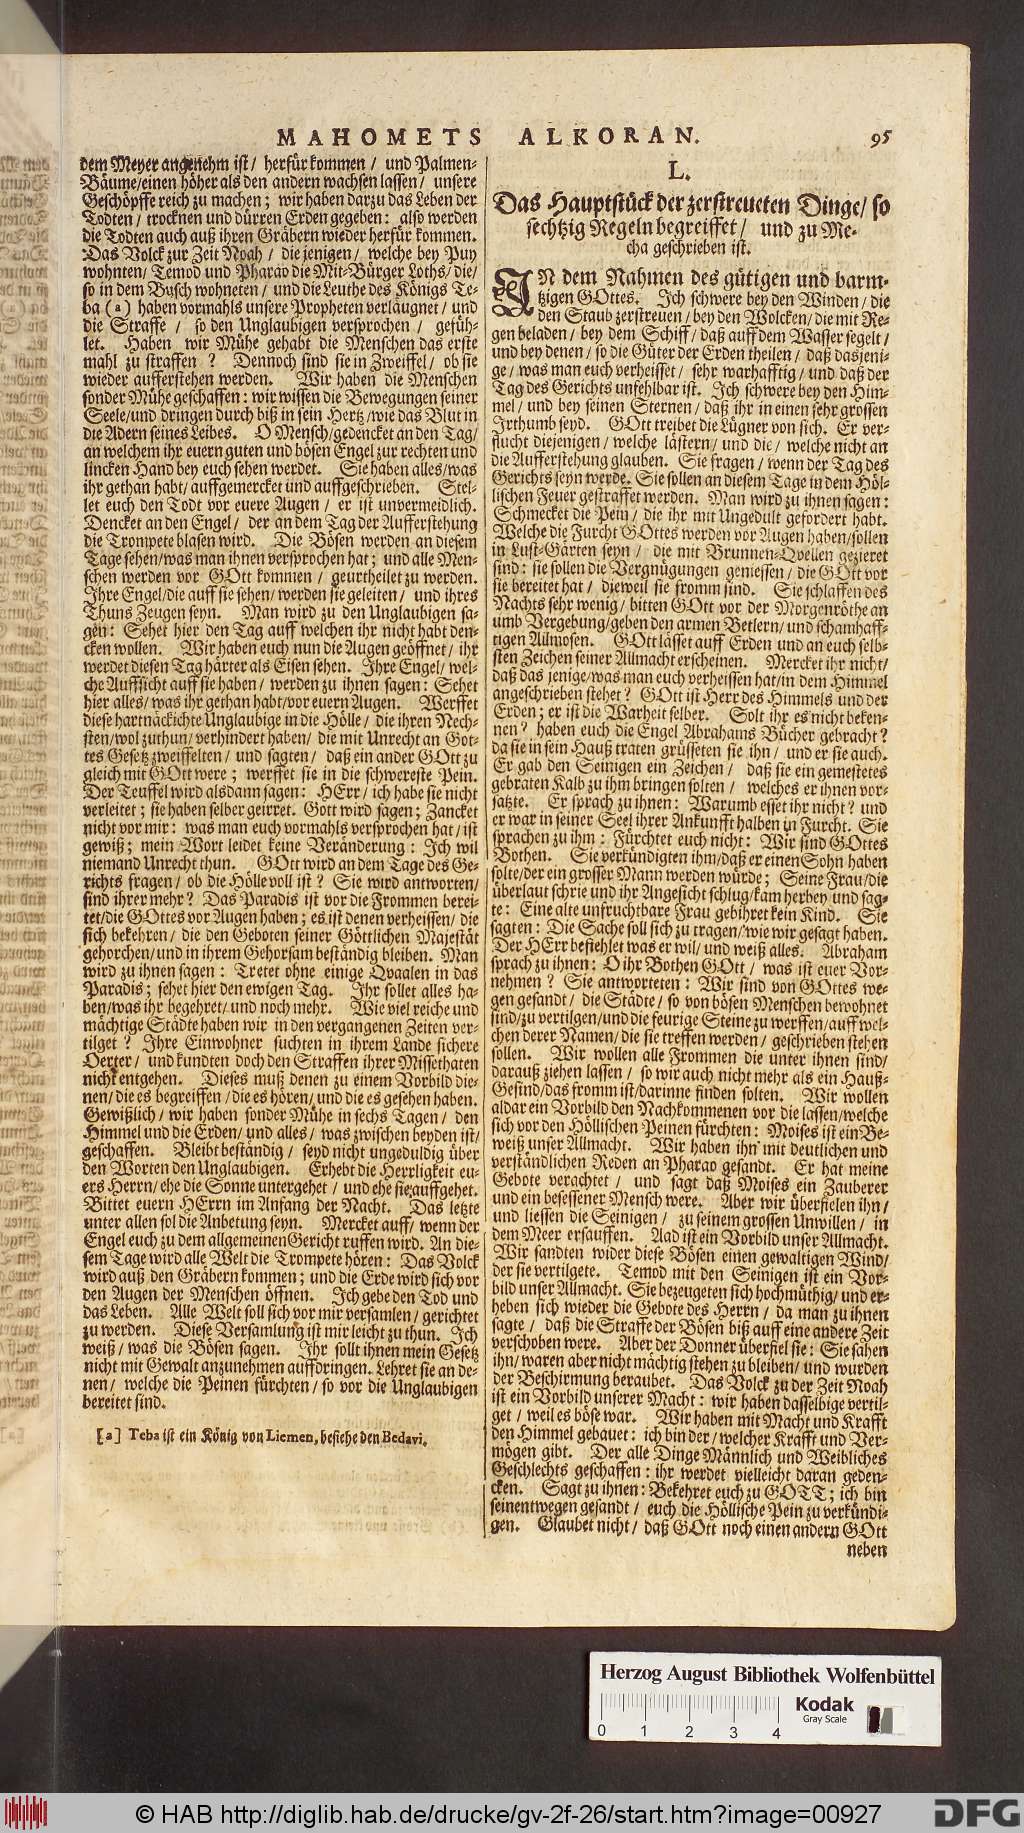 MAHOMETS ALKORAN. 95
dem Meyer angenehm ist / herfür kommen / und Palmen-
Bäume/einen höher als den andern wachsen lassen / unsere
Geschöpffe reich zu machen; wir haben darzu das Leben der
Todten / trocknen und dürren Erden gegeben: also werden
die Todten auch auß ihren Gräbern wieder herfür kommen.
Das Volck zur Zeit Noah / die jenigen / welche bey Puy
wohnten/ Temod und Pharao die Mit-Bürger Loths/die/
so in dem Busch wohneten / und die Leuthe des Königs Te-
ba (a) haben vormahls unsere Propheten verlaugnet / und
die Straffe / so den Unglaubigen versprochen / gefüh-
let. Haben wir Mühe gehabt die Menschen das erste
mahl zu straffen ? Dennoch sind sie in Zweiffel / ob sie
wieder aufferstehen werden. Wir haben die Menschen
sonder Mühe geschaffen: wir wissen die Bewegungen seiner
Seele/und dringen durch biß in sein Hertz/wie das Blut in
die Adern seines Leibes. O Mensch/gedencket an den Tag/
an welchem ihr euern guten und bösen Engel zur rechten und
lincken Hand bey euch sehen werdet. Sie haben alles/was
ihr gethan habt/ auffgemercket und auffgeschrieben. Stel-
let euch den Todt vor euere Augen / er ist unvermeidlich.
Dencket an den Engel / der an dem Tag der Aufferstehung
die Trompete blasen wird. Die Bösen werden an diesem
Tage sehen/was man ihnen versprochen hat; und alle Men-
schen werden vor GOtt kommen / geurtheilet zu werden.
Ihre Engel/die auff sie sehen/werden sie geleiten / und ihres
Thuns Zeugen seyn. Man wird zu den Unglaubigen sa-
gen: Sehet hier den Tag auff welchen ihr nicht habt den-
cken wollen. Wir haben euch nun die Augen geöffnet / ihr
werdet diesen Tag härter als Eisen sehen. Ihre Engel/ wel-
che Auffsicht auff sie haben / werden zu ihnen sagen: Sehet
hier alles / was ihr gethan habt/vor euern Augen. Werffet
diese hartnäckichte Unglaubige in die Hölle / die ihren Nech-
sten/wol zuthun/verhindert haben/ die mit Unrecht an Got-
tes Gesetz zweiffelten / und sagten / daß ein ander GOtt zu
gleich mit GOtt were; werffet sie in die schwereste Pein.
Der Teuffel wird als dann sagen: HErr/ ich habe sie nicht
verleitet; sie haben selber geirret. Gott wird sagen; Zancket
nicht vor mir: was man euch vormahls versprochen hat / ist
gewiß; mein Wort leidet keine Veränderung: Ich wil
niemand Unrecht thun. GOtt wird an dem Tage des Ge-
richts fragen / ob die Hölle voll ist? Sie wird antworten/
sind ihrer mehr? Das Paradis ist vor die Frommen berei-
tet/die GOttes vor Augen haben; es ist denen verheissen/ die
sich bekehren / die den Geboten seiner Göttlichen Majestät
gehorchen/ und in ihrem Gehorsam beständig bleiben. Man
wird zu ihnen sagen: Tretet ohne einige Qvaalen in das
Paradis; sehet hier den ewigen Tag. Ihr sollet alles ha-
ben/was ihr begehret/ und noch mehr. Wie viel reiche und
mächtige Städte haben wir in den vergangenen Zeiten ver-
tilget? Ihre Einwohner suchten in ihrem Lande sichere
Oerter / und kundten doch den Straffen ihrer Missethaten
nicht entgehen. Dieses muß denen zu einem Vorbild die-
nen/ die es begreiffen / die es hören/ und die es gesehen haben.
Gewißlich / wir haben sonder Mühe in sechs Tagen / den
Himmel und die Erden/ und alles / was zwischen beyden ist/
geschaffen. Bleibt beständig / seyd nicht ungeduldig über
den Worten den Unglaubigen. Erhebt die Herrligkeit eu-
ers Herrn/ ehe die Sonne untergehet / und ehe sie auffgehet.
Bittet euern HErrn im Anfang der Nacht. Das letzte
unter allen sol die Anbetung seyn. Mercket auff / wenn der
Engel euch zu dem allgemeinen Gericht ruffen wird. An die-
sem Tage wird alle Welt die Trompete hören: Das Volck
wird auß den Gräbern kommen; und die Erde wird sich vor
den Augen der Menschen öffnen. Ich gebe den Tod und
das Leben. Alle Welt soll sich vor mir versamlen / gerichtet
zu werden. Diese Versamlung ist mir leicht zu thun. Ich
weiß / was die Bösen sagen. Ihr sollt ihnen mein Gesetz
nicht mit Gewalt anzunehmen auffdringen. Lehret sie an de-
nen / welche die Peinen fürchten / so vor die Unglaubigen
bereitet sind.
[a] Teba ist ein König von Liemen, besiehe den Bedavi.
L.
Das Hauptstück der zerstreueten Dinge / so
sechtzig Regeln begreiffet / und zu Me-
cha geschrieben ist.
IN dem Nahmen des gütigen und barm-
tzigen GOttes. Ich schwere bey den Winden / die
den Staub zerstreuen / bey den Wolcken / die mit Re-
gen beladen / bey dem Schiff / daß auff dem Wasser segelt /
und bey denen / so die Güter der Erden theilen / daß dasjeni-
ge / was man euch verheisset / sehr warhafftig / und daß der
Tag des Gerichts unfehlbar ist. Ich schwere bey den Him-
mel / und bey seinen Sternen / daß ihr in einen sehr grossen
Irthumb seyd. GOtt treibet die Lügner von sich. Er ver-
flucht diejenigen / welche lästern / und die / welche nicht an
die Aufferstehung glauben. Sie fragen / wenn der Tag des
Gerichts seyn werde. Sie sollen an diesem Tage in dem Höl-
lischen Feuer gestraffet werden. Man wird zu ihnen sagen:
Schmecket die Pein / die ihr mit Ungedult gefordert habt.
Welche die Furcht GOttes werden vor Augen haben/sollen
in Lust-Gärten seyn / die mit Brunnen-Qvellen gezieret
sind: sie sollen die Vergnügungen geniessen / die GOtt vor
sie bereitet hat / dieweil sie fromm sind. Sie schlaffen des
Nachts sehr wenig / bitten GOtt vor der Morgenröthe an
umb Vergebung/geben den armen Betlern/ und schamhaff-
tigen Allmosen. GOtt lässet auff Erden und an euch selb-
sten Zeichen seiner Allmacht erscheinen. Mercket ihr nicht /
daß das jenige/was man euch verheissen hat/in dem Himmel
angeschrieben stehet? GOtt ist Herr des Himmels und der
Erden; er ist die Warheit selber. Solt ihr es nicht beken-
nen? haben euch die Engel Abrahams Bücher gebracht?
da sie in sein Hauß traten grüsseten sie ihn / und er sie auch.
Er gab den Seinigen ein Zeichen / daß sie ein gemestetes
gebraten Kalb zu ihm bringen solten / welches er ihnen vor-
satzte. Er sprach zu ihnen: Warumb esset ihr nicht? und
er war in seiner Seel ihrer Ankunfft halben in Furcht. Sie
sprachen zu ihm: Fürchtet euch nicht: Wir sind GOttes
Bothen. Sie verkündigten ihm/daß er einen Sohn haben
solte/der ein grosser Mann werden würde; Seine Frau/die
überlaut schrie und ihr Angesicht schlug/kam herbey und sag-
te: Eine alte unfruchtbare Frau gebihret kein Kind. Sie
sagten: Die Sache soll sich zu tragen/wie wir gesagt haben.
Der HErr befiehlet was er wil/ und weiß alles. Abraham
sprach zu ihnen: O ihr Bothen GOtt / was ist euer Vor-
nehmen? Sie antworteten: Wir sind von GOttes we-
gen gesandt / die Städte / so von bösen Menschen bewohnet
sind/zu vertilgen/und die feurige Steine zu werffen/auff wel-
chen derer Namen/die sie treffen werden / geschrieben stehen
sollen. Wir wollen alle Frommen die unter ihnen sind/
darauß ziehen lassen / so wir auch nicht mehr als ein Hauß-
Gesind/das fromm ist/darinne finden solten. Wir wollen
aldar ein Vorbild den Nachkommenen vor die lassen/welche
sich vor den Höllischen Peinen fürchten: Moises ist ein Be-
weiß unser Allmacht. Wir haben ihn mit deutlichen und
verständlichen Reden an Pharao gesandt. Er hat meine
Gebote verachtet / und sagt daß Moises ein Zauberer
und ein besessener Mensch were. Aber wir überfielen ihn /
und liessen die Seinigen / zu seinem grossen Unwillen / in
dem Meer ersauffen. Aad ist ein Vorbild unser Allmacht.
Wir sandten wider diese Bösen einen gewaltigen Wind/
der sie vertilgete. Temod mit den Seinigen ist ein Vor-
bild unser Allmacht. Sie bezeugeten sich hochmüthig/ und er-
heben sich wieder die Gebote des Herrn / da man zu ihnen
sagte / daß die Straffe der Bösen biß auff eine andere Zeit
verschoben were. Aber der Donner überfiel sie: Sie sahen
ihn / waren aber nicht mächtig stehen zu bleiben / und wurden
der Beschirmung beraubet. Das Volck zu der Zeit Noah
ist ein Vorbild unserer Macht: wir haben dasselbige vertil-
get / weil es böse war. Wir haben mit Macht und Krafft
den Himmel gebauet: ich bin der / welcher Krafft und Ver-
mögen gibt. Der alle Dinge Männlich und Weibliches
Geschlechts geschaffen: ihr werdet vielleicht daran geden-
cken. Sagt zu ihnen: Bekehret euch zu GOTT; ich bin
seinentwegen gesandt / euch die Höllische Pein zu verkündi-
gen. Glaubet nicht / daß GOtt noch einen andern GOtt
neben
Herzog August Bibliothek Wolfenbüttel
Kodak
Gray Scale
0 1 2 3 4
© HAB http://diglib.hab.de/drucke/gv-2f-26/start.htm?image=00927
DFG